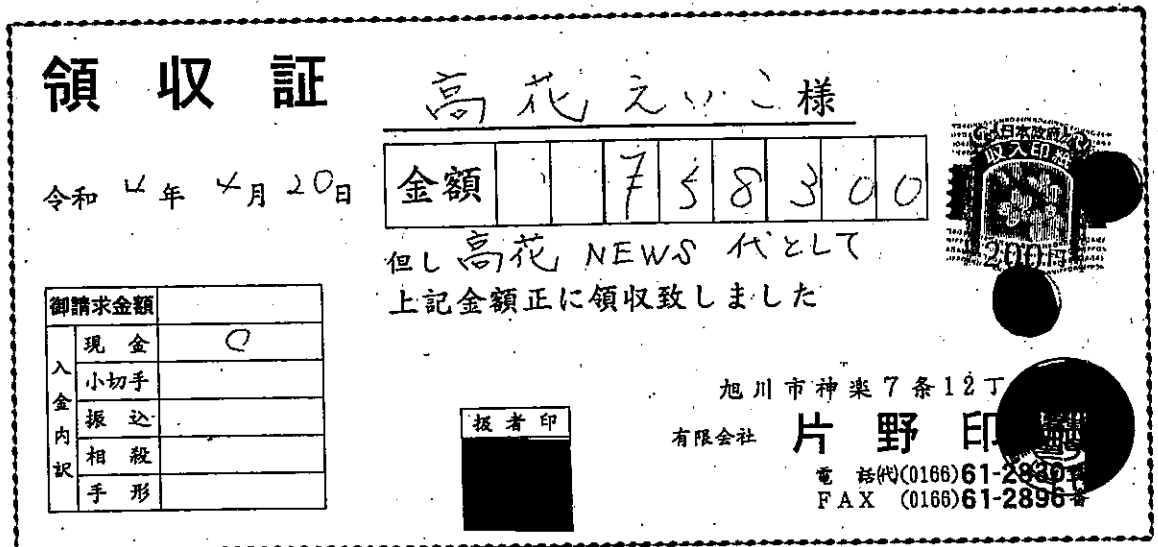 領収証
高花えいこ様
令和4年4月20日
金額 758300
但し 高花 NEWS 代として
上記金額正に領収致しました
日本政府
収入印紙
200円
御請求金額
入金内訳
現金 ○
小切手
振込
相殺
手形
扱者印
旭川市神楽7条12丁
有限会社 片野印
電話(代)(0166)61-2830
FAX (0166)61-2896番